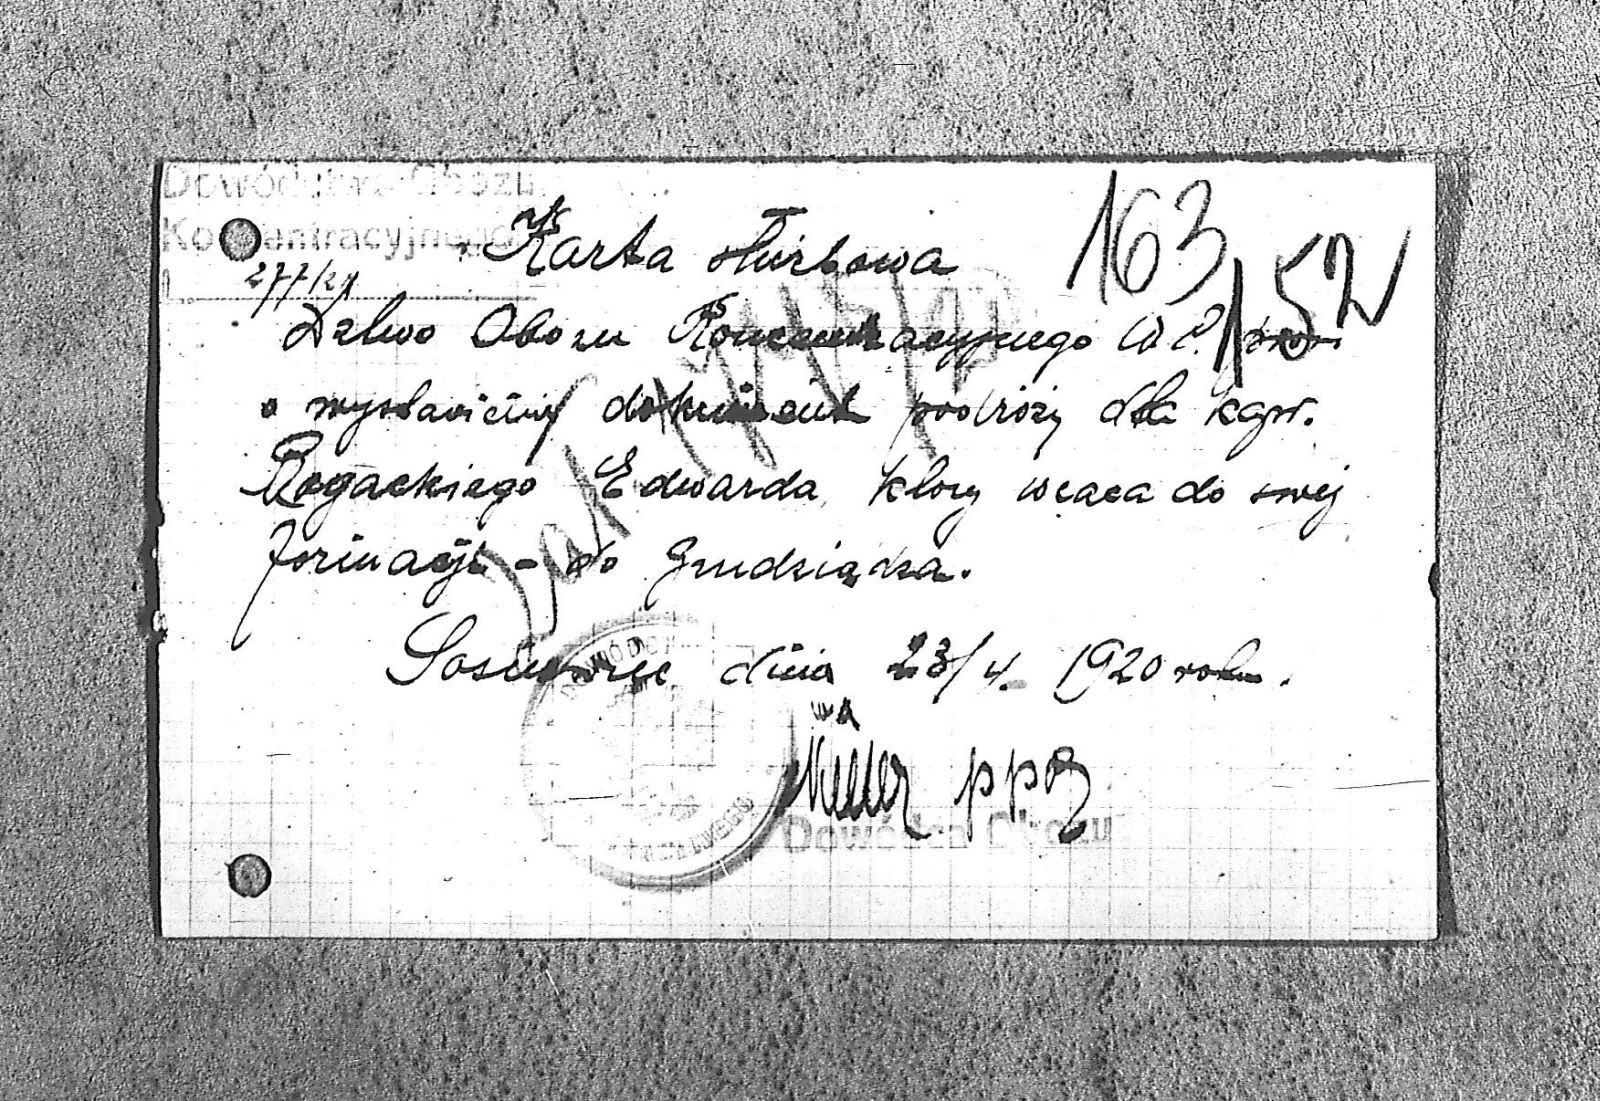 Dowództwo Obozu
Koncentracyjnego
L. 277/20
163/52
Karta służbowa
Dztwo Obozu Koncentracyjnego W.P. prosi
o wystawienie dokument podróży dla kapr.
Rogackiego Edwarda, który wraca do swej
formacji - do Grudziądza.
Sosnowiec dnia 23/4. 1920 roku.
Müller ppor
Dowódca Obozu